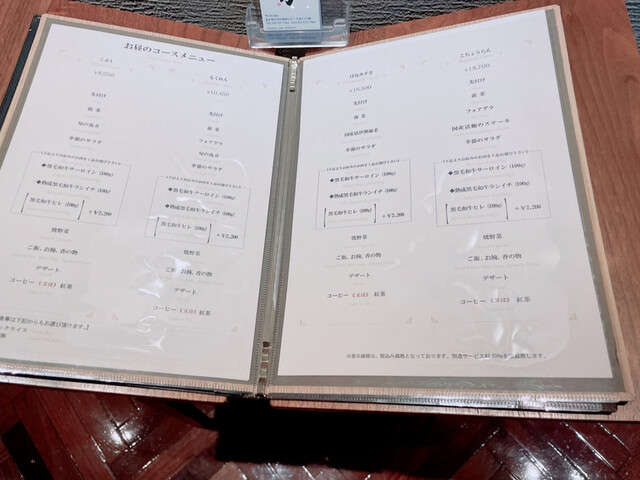 お昼のコースメニュー
こぶし
¥8,250
先付け
前菜
旬の魚介
季節のサラダ
◆黒毛和牛サーロイン (100g)
◆熟成黒毛和牛ランイチ (100g)
黒毛和牛ヒレ (100g) +¥2,200
焼野菜
ご飯、お椀、香の物
デザート
コーヒー 又は 紅茶
もくれん
¥10,450
先付け
前菜
フォアグラ
旬の魚介
季節のサラダ
◆黒毛和牛サーロイン (100g)
◆熟成黒毛和牛ランイチ (100g)
黒毛和牛ヒレ (100g) +¥2,200
焼野菜
ご飯、お椀、香の物
デザート
コーヒー 又は 紅茶
はなみずき
¥16,500
先付け
前菜
国産活伊勢海老
季節のサラダ
◆黒毛和牛サーロイン (100g)
◆熟成黒毛和牛ランイチ (100g)
黒毛和牛ヒレ (100g) +¥2,200
焼野菜
ご飯、お椀、香の物
デザート
コーヒー 又は 紅茶
こちょうらん
¥18,700
先付け
前菜
フォアグラ
国産活鮑のステーキ
季節のサラダ
◆黒毛和牛サーロイン (100g)
◆熟成黒毛和牛ランイチ (100g)
黒毛和牛ヒレ (100g) +¥2,200
焼野菜
ご飯、お椀、香の物
デザート
コーヒー 又は 紅茶
※表示価格は、税込み価格となっております。別途サービス料